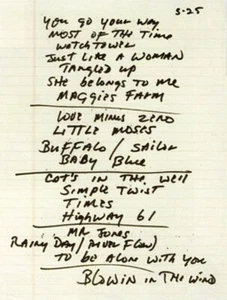 5-25
YOU GO YOUR WAY
MOST OF THE TIME
WATCHTOWER
JUST LIKE A WOMAN
TANGLED UP
SHE BELONGS TO ME
MAGGIES FARM
LOVE MINUS ZERO
LITTLE MOSES
BUFFALO / SAILOR
BABY BLUE
CAT'S IN THE WELL
SIMPLE TWIST
TIMES
HIGHWAY 61
MR JONES
RAINY DAY / (RIVER FLOW)
TO BE ALONE WITH YOU
BLOWIN IN THE WIND